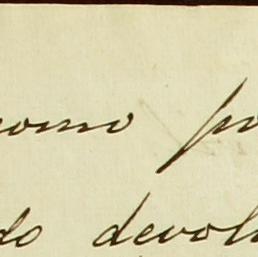 como po
do devol